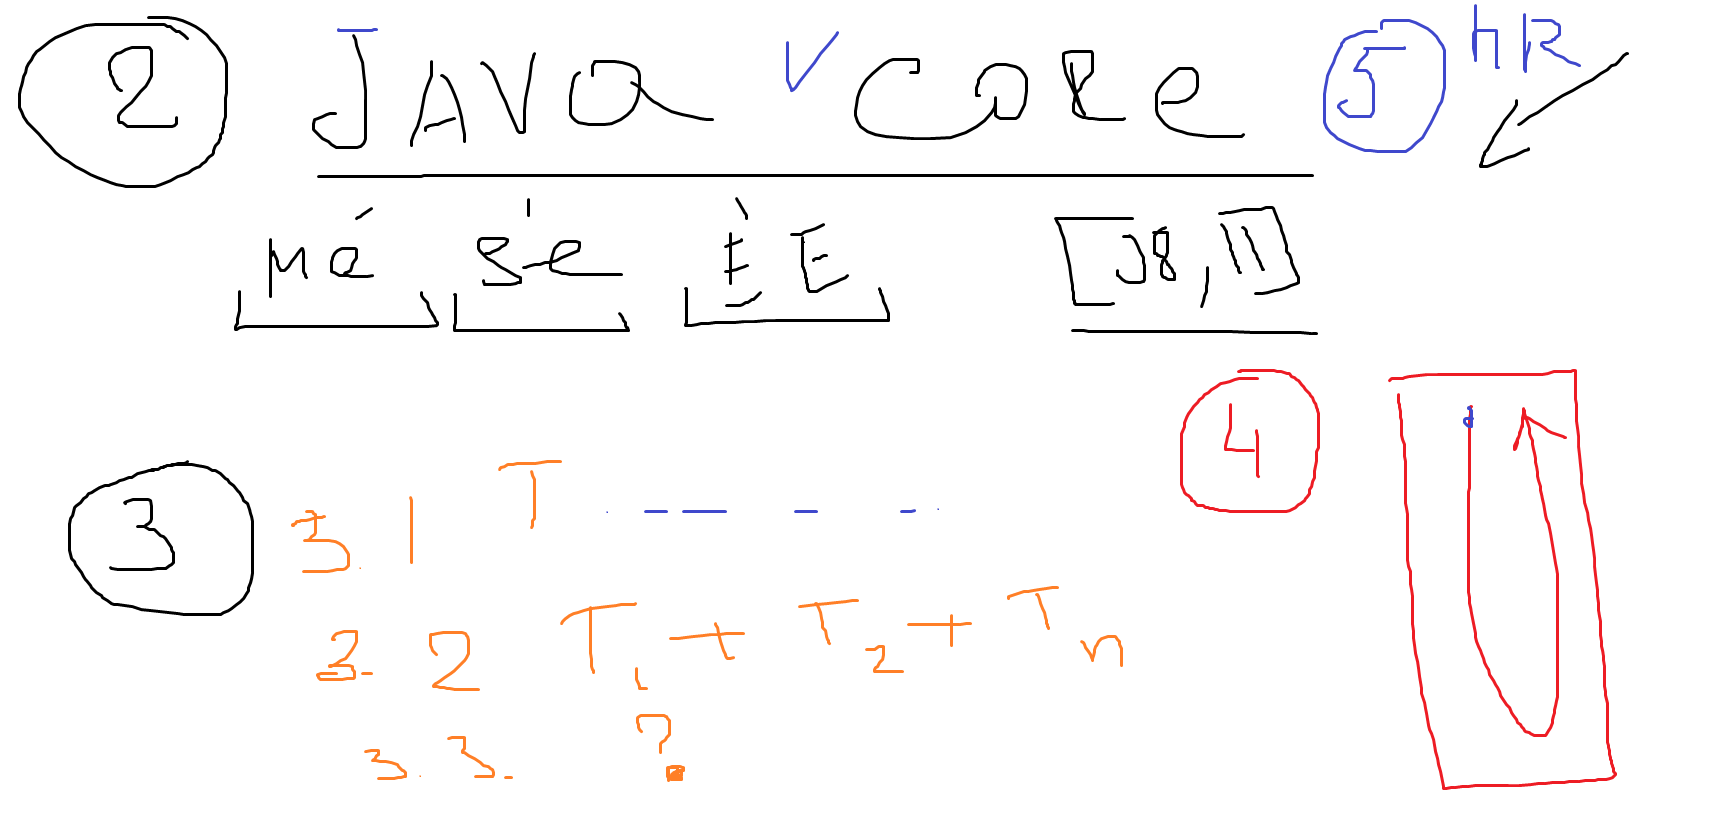 2 JAVA Core 5 HR
ME SE EE [J8, 11]
4
3 3.1 T
3.2 T1 + T2 + Tn
3.3. ?